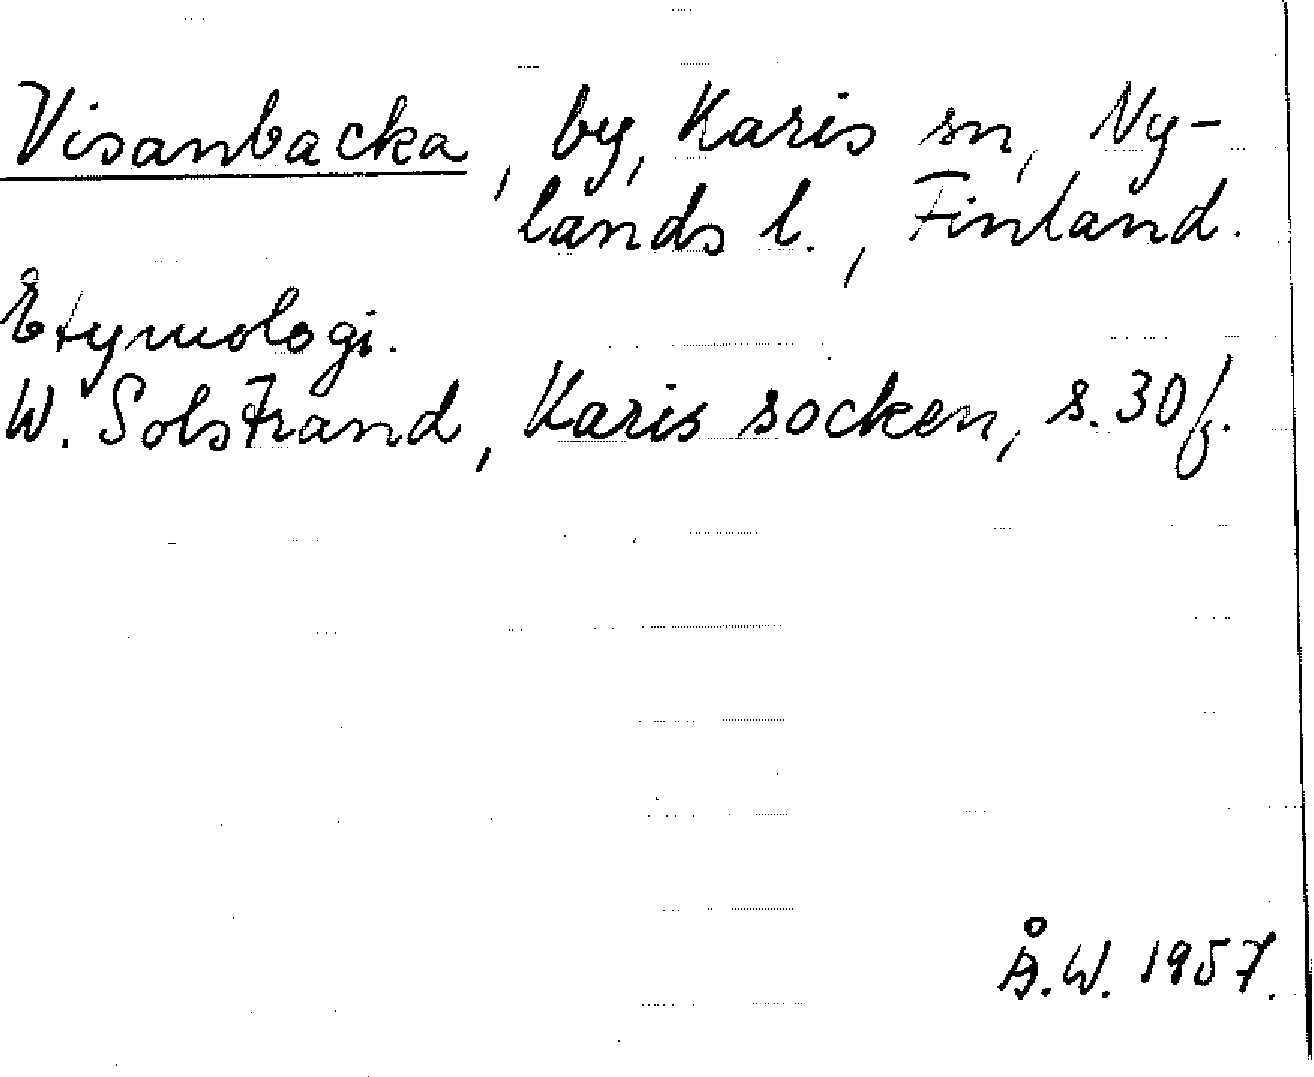 Visanbacka, by, Karis sn, Ny-
lands l., Finland.
Etymologi.
W. Solstrand, Karis socken, s. 30 f.
Å.W. 1957.